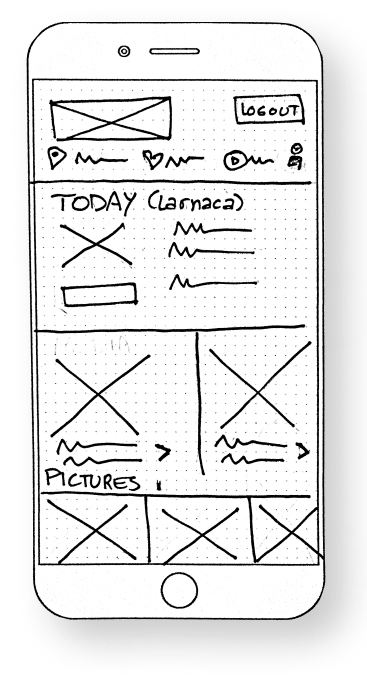 LOGOUT
TODAY (Larnaca)
PICTURES